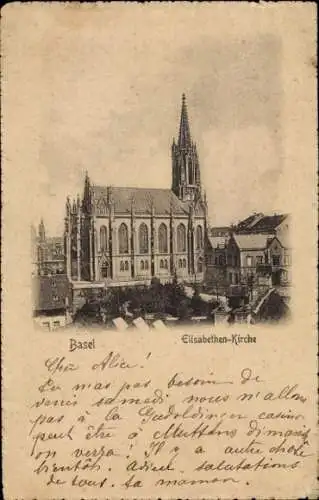 Basel
Elisabethen-Kirche
Chz Alice!
tu n'as pas besoin de
venir samedi nous n'allons
pas à la casino
peut être à Muttenz dimanche
on verra! Il y a autre chose
bientôt. Adieu, salutations
de tous. ta maman.